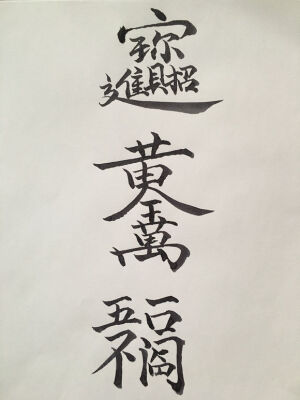 招財進寶
黃金萬兩
五福臨門